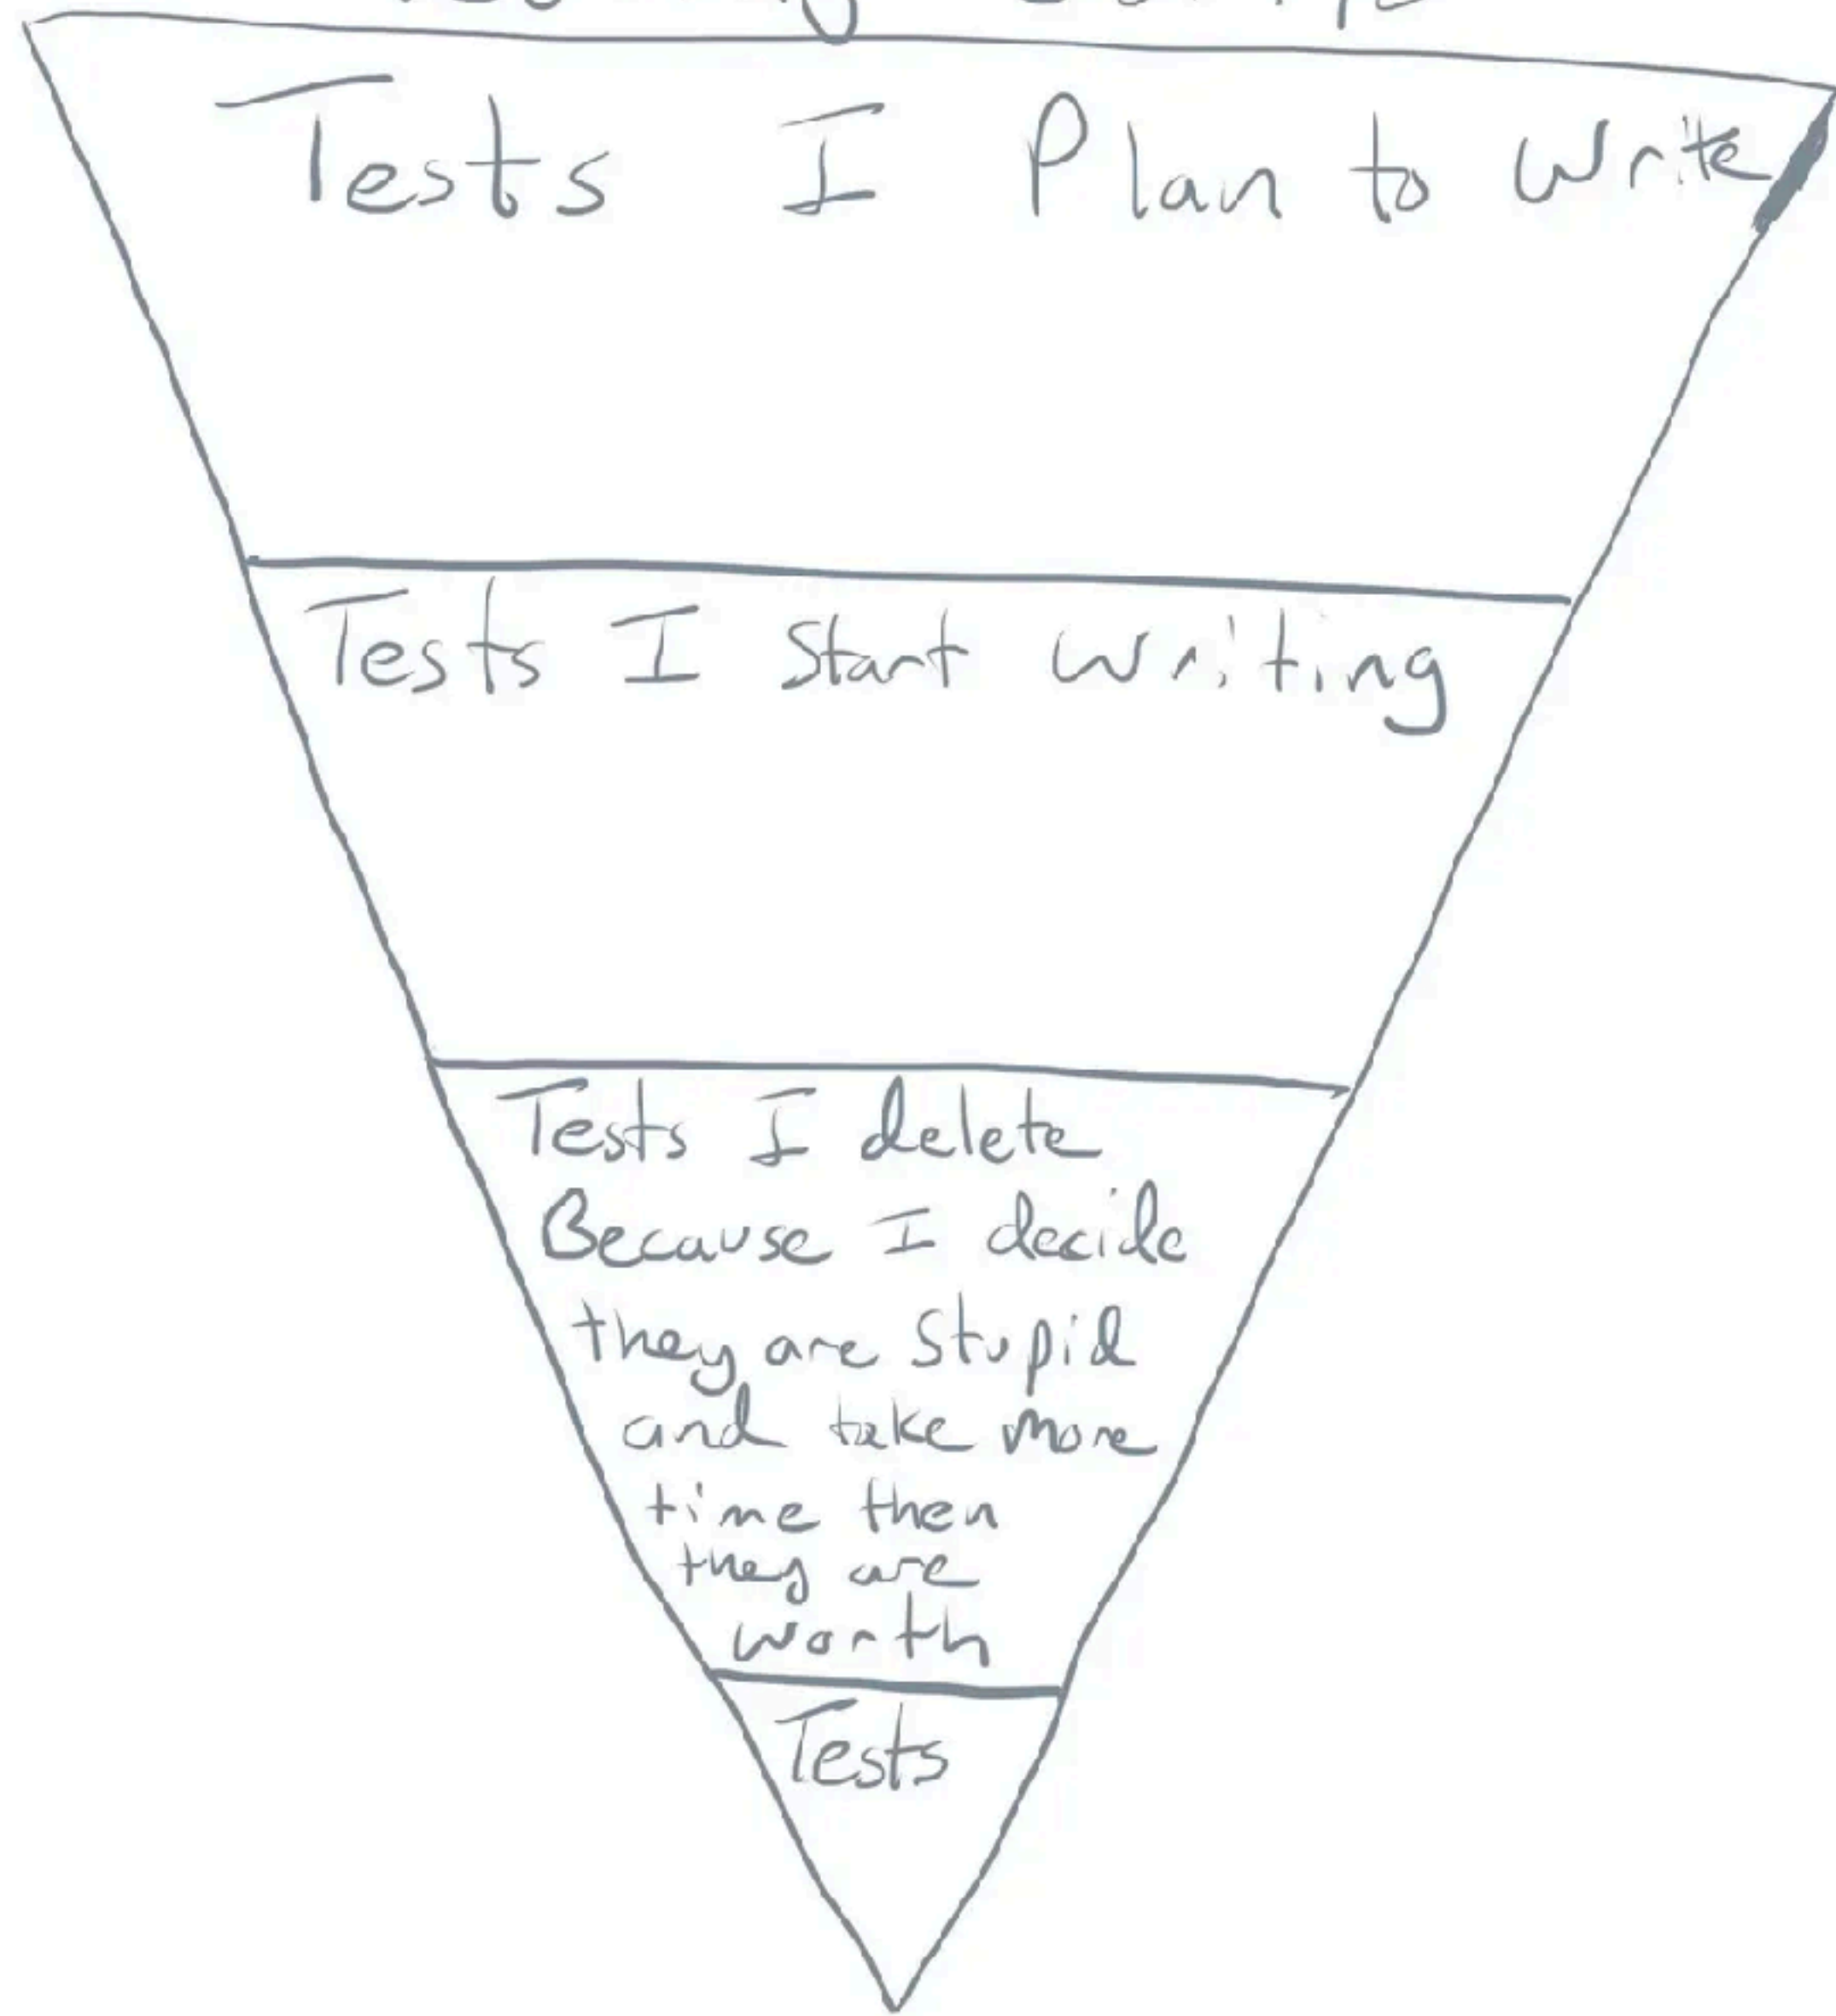 Tests I Plan to Write
Tests I Start writing
Tests I delete
Because I decide
they are Stupid
and take more
time then
they are
worth
Tests